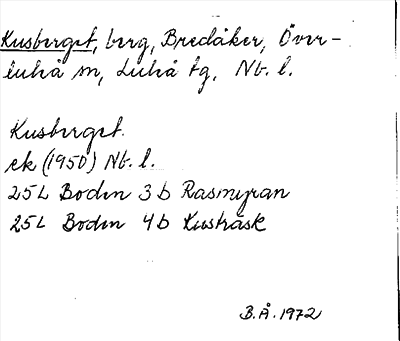 Kusberget, berg, Bredåker, Över-
luleå sn, Luleå tg, Nb. l.
Kusberget
ek (1950) Nb. l.
25L Boden 3b Rasmyran
25L Boden 4b Kusträsk
B.Å. 1972